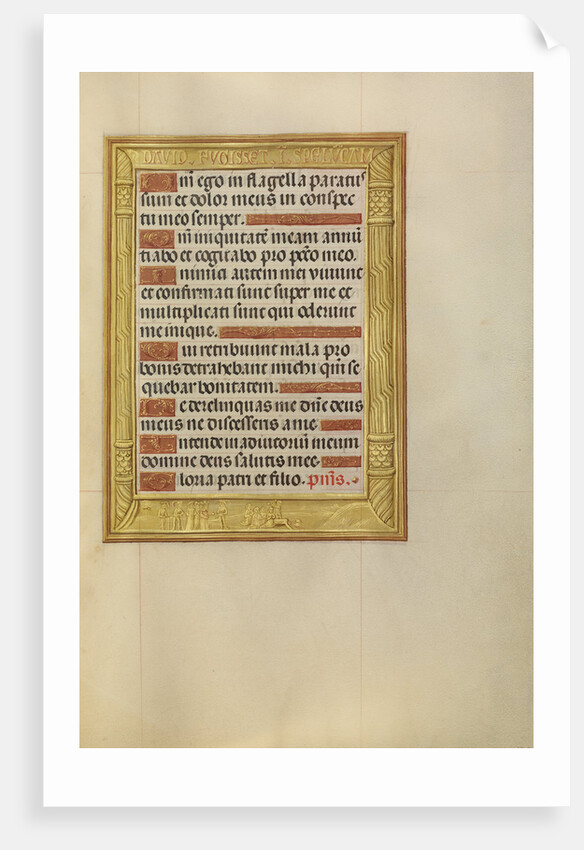 DAVID. FVGISSET. I. SPELVCAM
Qm̄ ego in flagella paratus
sum et dolor meus in conspec
tu meo semper.
Qm̄ iniquitatē meam annū
tiabo et cogitabo pro pctō meo.
Inimici autem mei viuunt
et confirmati sunt super me et
multiplicati sunt qui oderunt
me inique.
Qui retribuunt mala pro
bonis detrahebant michi qm̄ se
quebar bonitatem.
Ne derelinquas me dn̄e deus
meus ne discesseris a me.
Intende in adiutorium meum
domine deus salutis mee.
Gloria patri et filio. pm̄s.